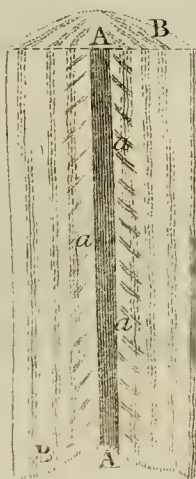 A B
a
a
a
B A